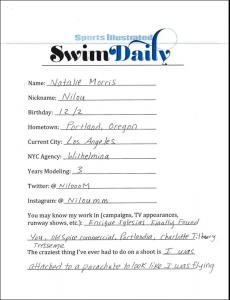 Sports Illustrated
Swim Daily
Name: Natalie Morris
Nickname: Nilou
Birthday: 12/2
Hometown: Portland, Oregon
Current City: Los Angeles
NYC Agency: Wilhelmina
Years Modeling: 3
Twitter: @ NiloooM
Instagram: @ Niloumm
You may know my work in (campaigns, TV appearances,
runway shows, etc.): Enrique Iglesias Finally Found
You, Old Spice commercial, Portlandia, Charlotte Tilbury
The craziest thing I've ever had to do on a shoot is I was
attached to a parachute to look like I was flying